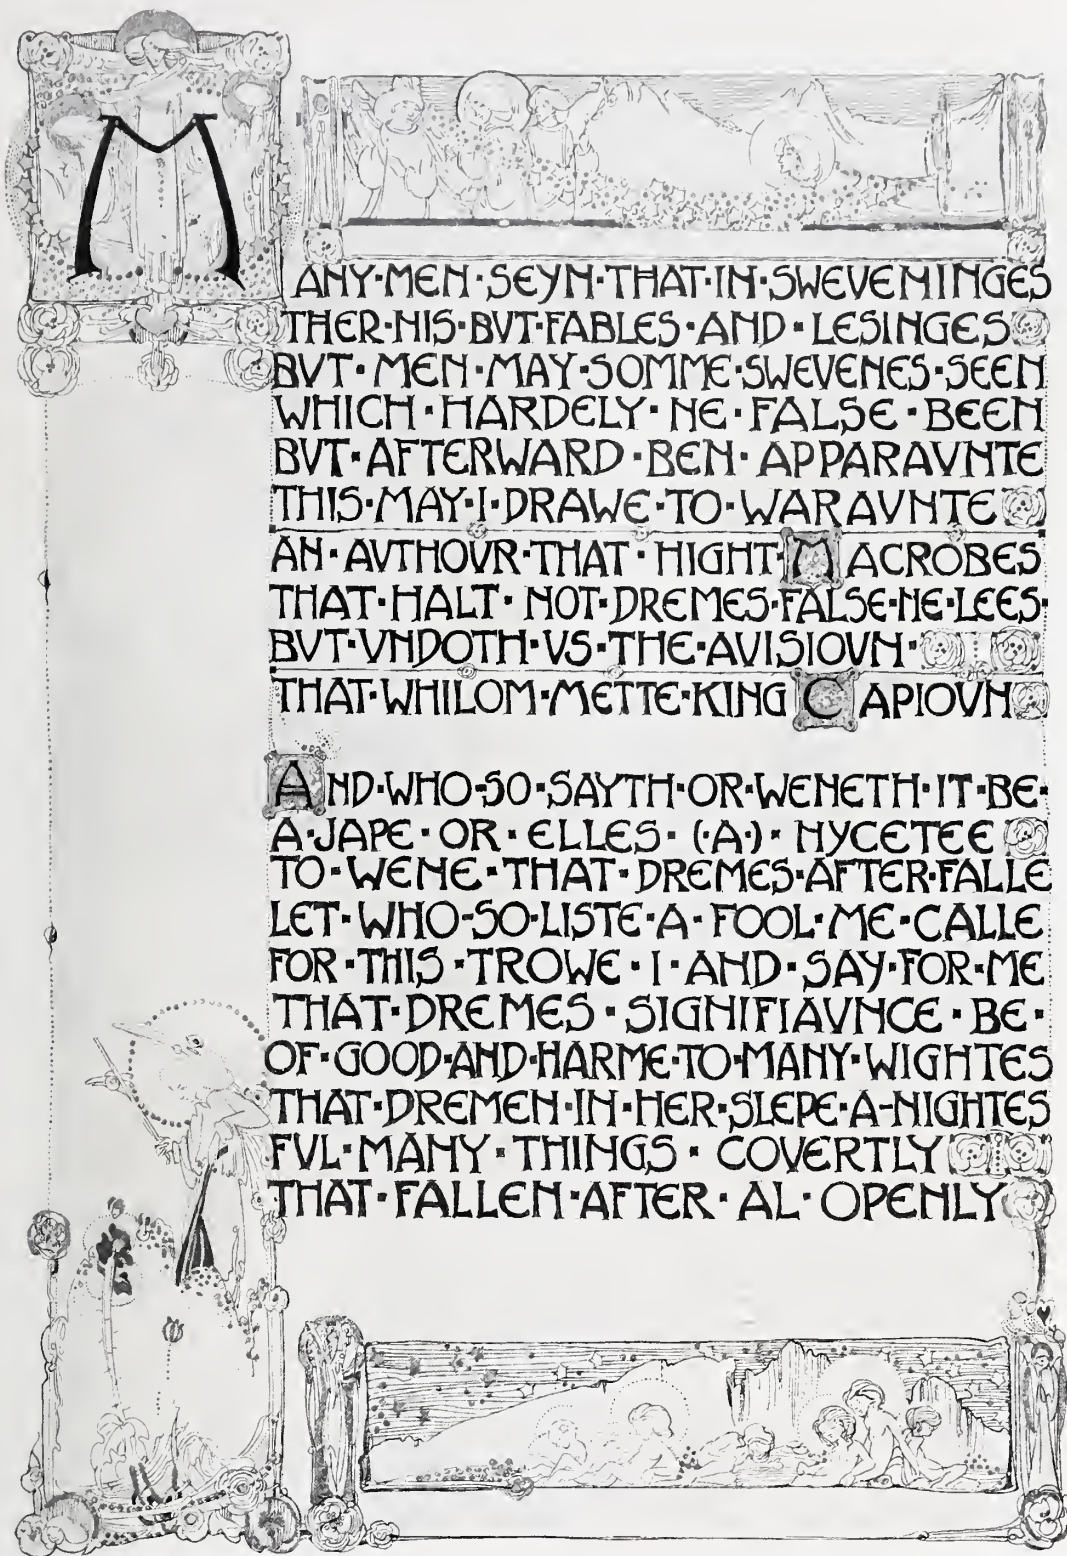 MANY·MEN·SEYN·THAT·IN·SWEVENINGES
THER·NIS·BVT·FABLES·AND·LESINGES
BVT·MEN·MAY·SOMME·SWEVENES·SEEN
WHICH·HARDELY·NE·FALSE·BEEN
BVT·AFTERWARD·BEN·APPARAVNTE
THIS·MAY·I·DRAWE·TO·WARAVNTE
AN·AVTHOVR·THAT·HIGHT·MACROBES
THAT·HALT·NOT·DREMES·FALSE·NE·LEES·
BVT·VNDOTH·VS·THE·AVISIOVN·
THAT·WHILOM·METTE·KING CAPIOVN
AND·WHO·SO·SAYTH·OR·WENETH·IT·BE·
A·JAPE·OR·ELLES·(·A·)·NYCETEE
TO·WENE·THAT·DREMES·AFTER·FALLE
LET·WHO·SO·LISTE·A·FOOL·ME·CALLE
FOR·THIS·TROWE·I·AND·SAY·FOR·ME
THAT·DREMES·SIGNIFIAVNCE·BE·
OF·GOOD·AND·HARME·TO·MANY·WIGHTES
THAT·DREMEN·IN·HER·SLEPE·A-NIGHTES
FVL·MANY·THINGS·COVERTLY
THAT·FALLEN·AFTER·AL·OPENLY